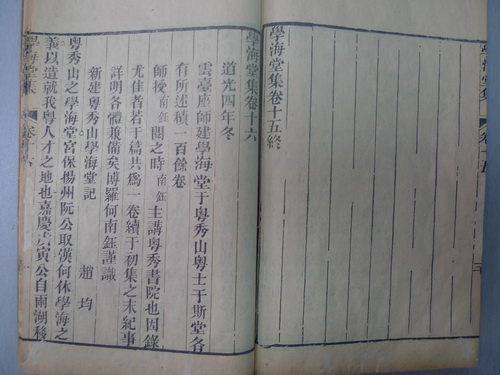 學海堂集 卷十五
學海堂集卷十五終
學海堂集卷十六
道光四年冬
雲臺座師建學海堂于粤秀山粤士于斯堂各
有所述積一百餘卷
師授南鈺閱之時南鈺主講粤秀書院也因錄
尤佳者若于篇共爲一卷續于初集之末紀事
詳明各體兼備矣博羅何南鈺謹識
新建粤秀山學海堂記
趙均
粤秀山之學海堂宮保揚州阮公取漢何休學海之
義以造就我粤人才之地也嘉慶戊寅公自兩湖移
學海堂集 卷十六 一